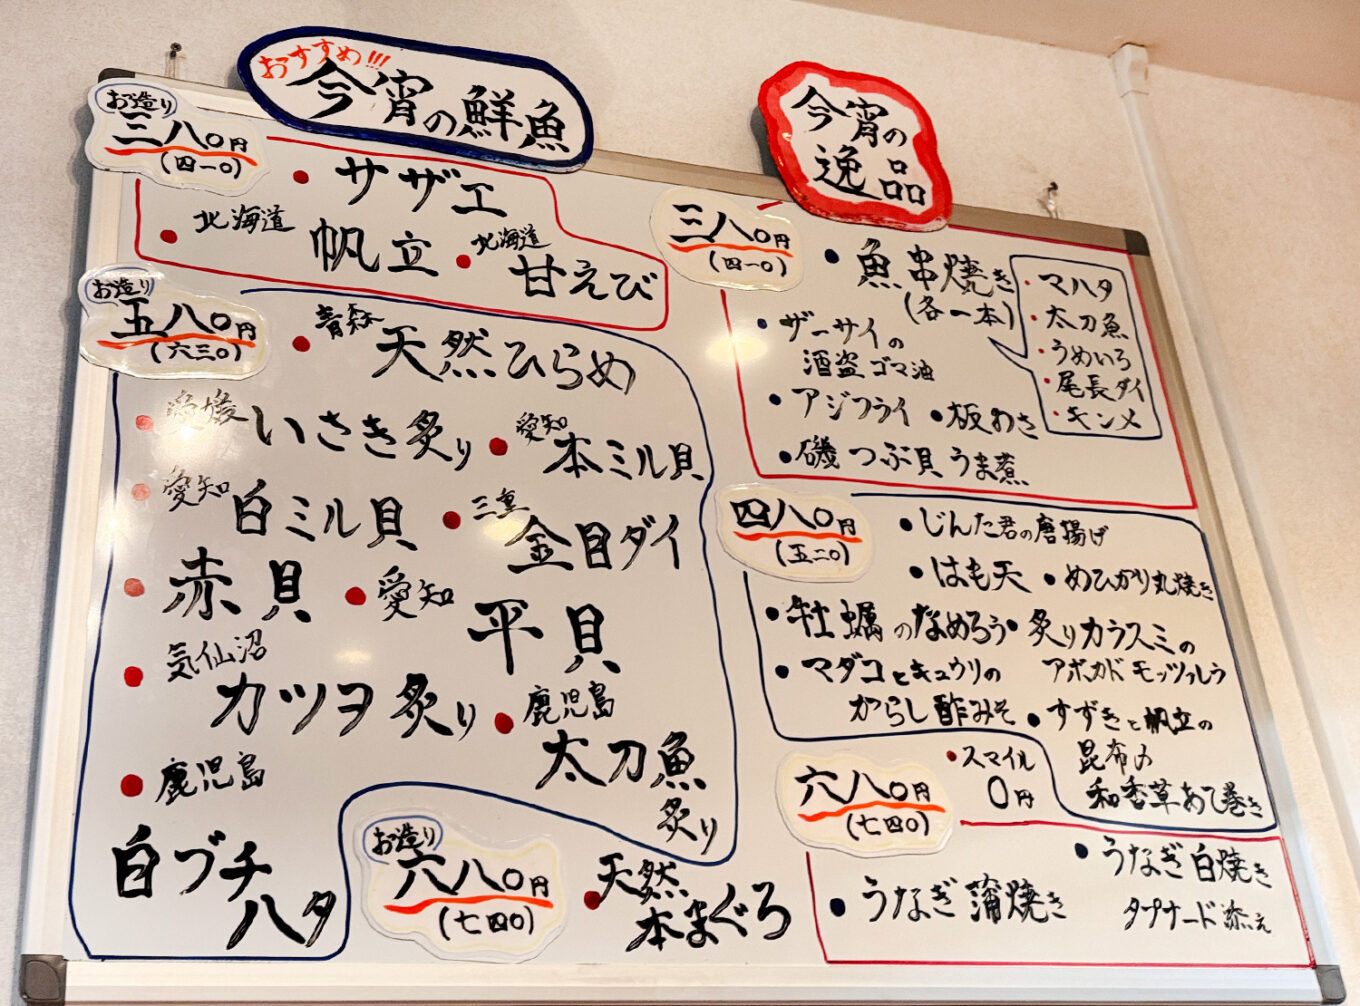 おすすめ!!!
今宵の鮮魚
お造り
三八〇円
(四一〇)
サザエ
北海道
帆立
北海道
甘えび
お造り
五八〇円
(六三〇)
青森
天然ひらめ
愛媛
いさき炙り
愛知
本ミル貝
愛知
白ミル貝
三重
金目ダイ
赤貝
愛知
平貝
気仙沼
カツヲ炙り
鹿児島
太刀魚
炙り
鹿児島
白ブチ
ハタ
お造り
六八〇円
(七四〇)
天然
本まぐろ
今宵の
逸品
三八〇円
(四一〇)
魚串焼き
(各一本)
マハタ
太刀魚
うめいろ
尾長ダイ
キンメ
ザーサイの
酒盗ゴマ油
アジフライ
板わさ
磯つぶ貝うま煮
四八〇円
(五二〇)
じんた君の唐揚げ
はも天
めひかり丸焼き
牡蠣のなめろう
炙りカラスミの
アボカドモッツァレラ
マダコとキュウリの
からし酢みそ
すずきと帆立の
昆布〆
和香草あて巻き
スマイル
0円
六八〇円
(七四〇)
うなぎ白焼き
タプナード添え
うなぎ蒲焼き